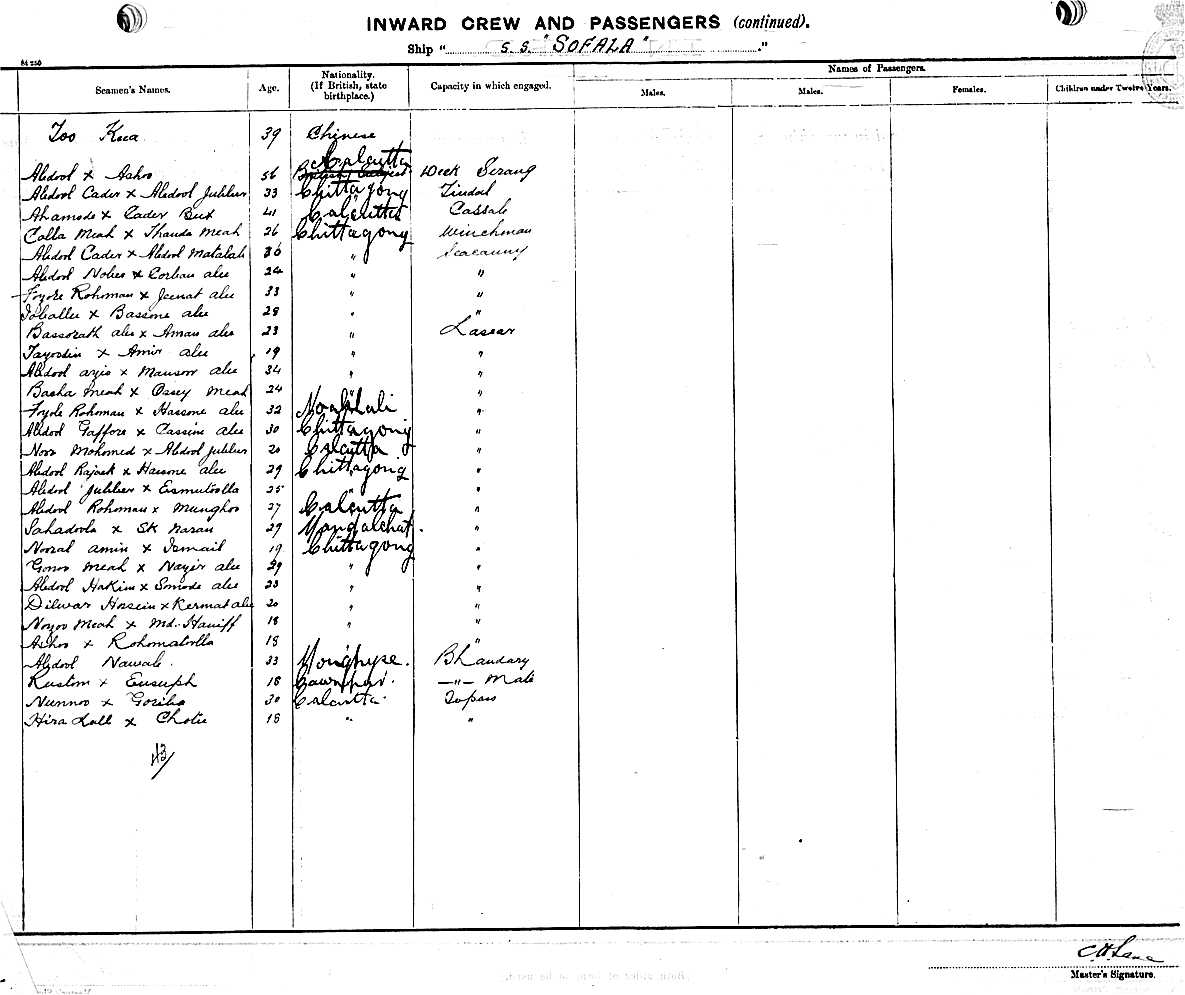 INWARD CREW AND PASSENGERS (continued).
Ship "S.S. "SOFALA"."
84 250
Seamen's Names. Age. Nationality. (If British, state birthplace.) Capacity in which engaged. Names of Passengers.
Males. Males. Females. Children under Twelve Years.
Too Kua 39 Chinese
Calcutta
Abdool x Ashoo 56 British Subject Deck Serang
Abdool Cader x Abdool Jubber 33 Chittagong Tindal
Ahamode x Cader Bux 41 Calcutta Cassab
Calla Meah x Thanda Meah 26 Chittagong Winchman
Abdool Cader x Abdool Matalab 36 " Seacunny
Abdool Nobee x Corban alee 24 " "
Foyore Rohoman x Jeenat alee 33 " "
x Bassone alee 28 " "
Bassorath alee x Aman alee 23 " Lascar
Tayoodin x Amir alee 19 " "
Abdool azis x Mansoor alee 34 " "
Basha Meah x Ossey Meah 24 " "
Foyore Rohoman x Hassone alee 32 Noakhali "
Abdool Gaffore x Cassim alee 30 Chittagong "
Noor Mohomed x Abdool Jubber 20 Calcutta "
Abdool Rajack x Hassone alee 29 Chittagong "
Abdool Jubber x Esmutoolla 25 " "
Abdool Rohoman x Munghoo 27 Calcutta "
Sahadoola x SK Nasau 29 Mandalghat. "
Noozal amin x Ismail 19 Chittagong "
Gonoo Meah x Nazir alee 29 " "
Abdool Hakim x Somode alee 23 " "
Dilwar Hosein x Kermat alee 20 " "
Noyoo Meah x Md. Haniff 18 " "
Ashoo x Rohomatoolla 18 "
Abdool Nawab. 33 Monghyre. Bhandary
Rustom x Eusuph 18 Cawnpar. —"— Mate
Nunnoo x Goriba 30 Calcutta. Topass
Hira Lall x Chotee 18 " "
43/
C H Lane
Master's Signature.